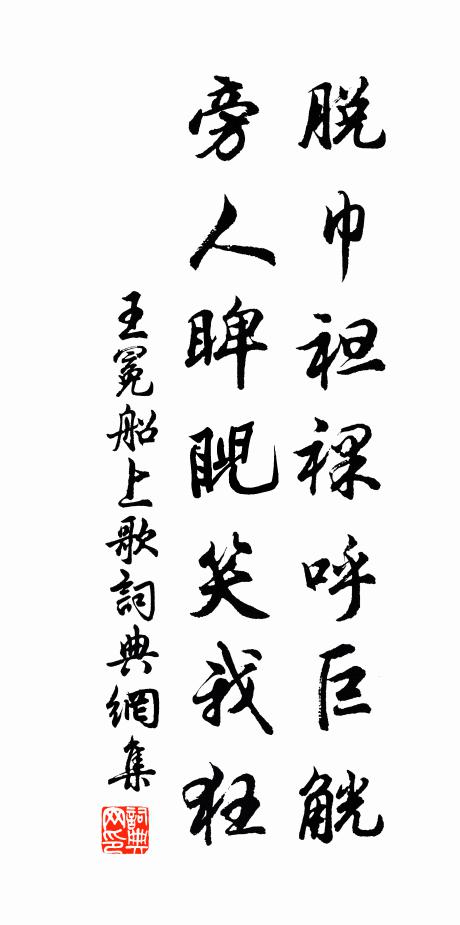 脱巾袒裸呼巨觥
旁人睥睨笑我狂
王冕船上歌詞典網集
詞典網印